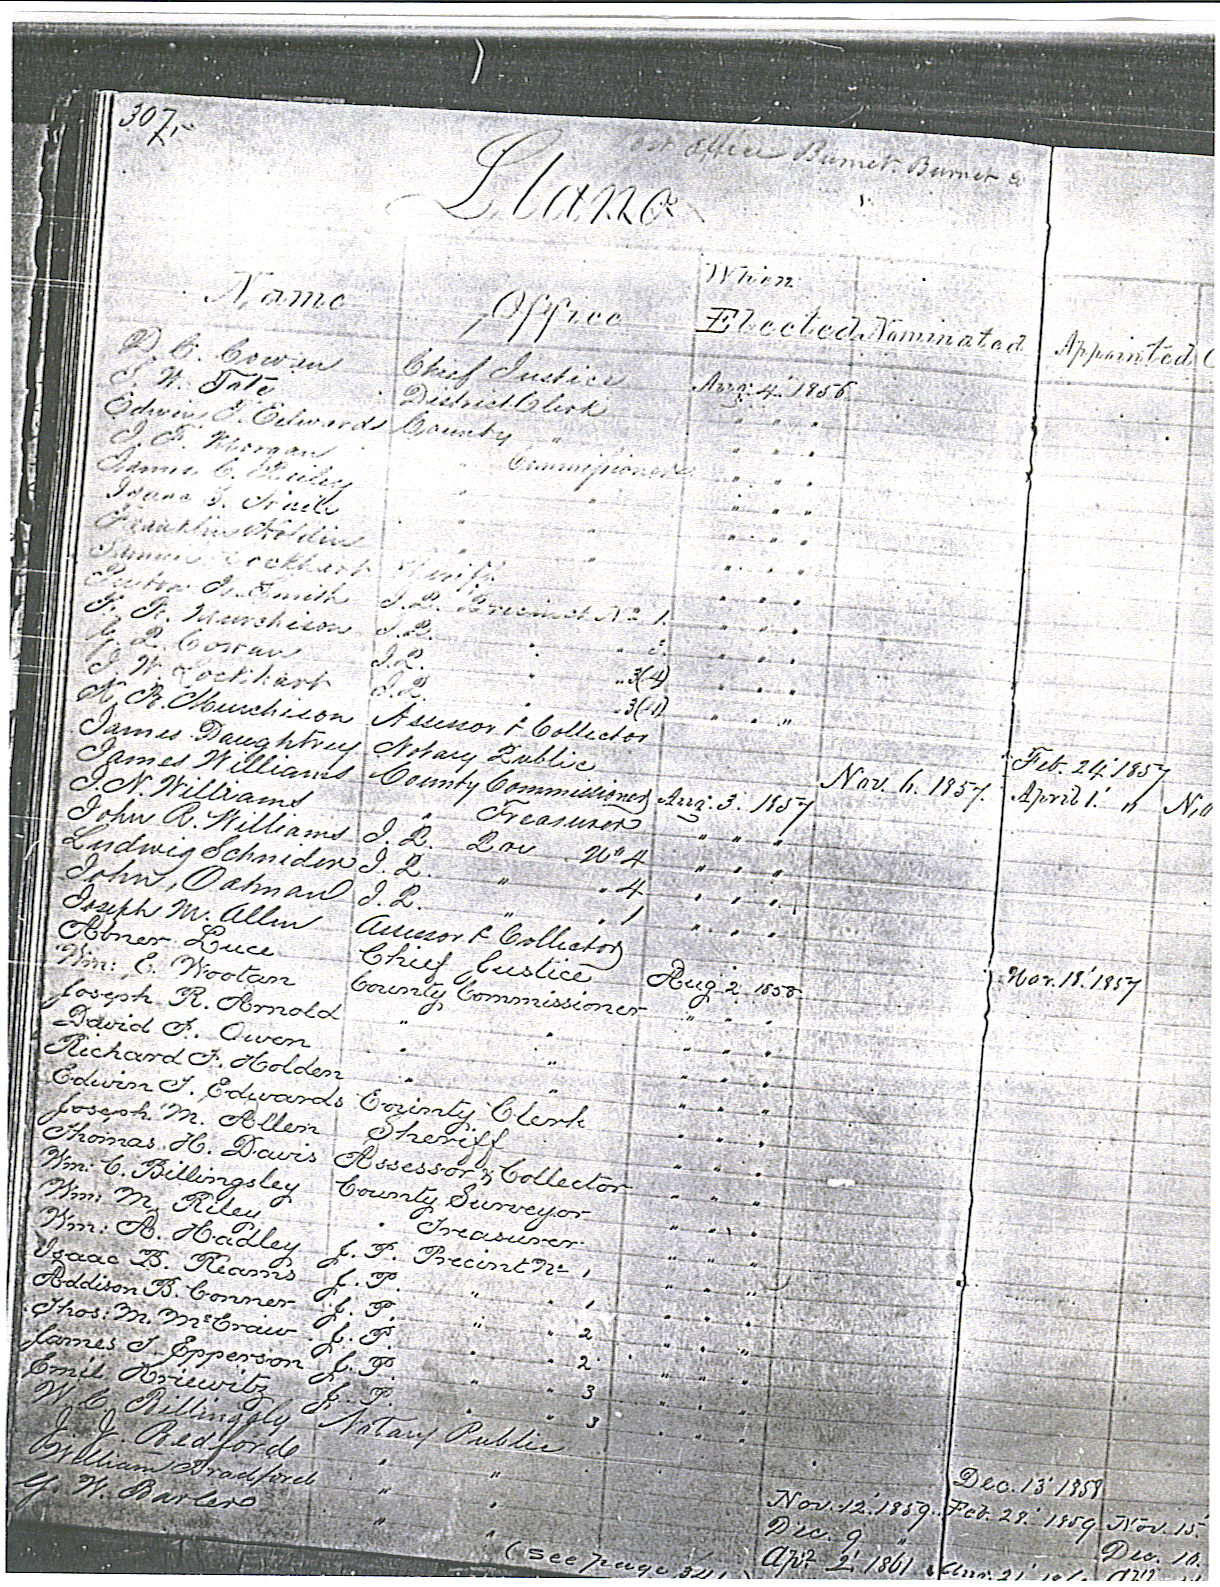 307
Post Office Burnet. Burnet
Llano
Name Office When Elected Nominated Appointed
D. C. Cowan Chief Justice Aug. 4. 1856
J. W. Tate District Clerk " " "
Edwin J. Edwards County " " " "
J. F. Morgan " Commissioner " " "
James C. Reiley " " " " "
Isaac " " " " "
Franklin Holden " " " " "
Lockhart Sheriff " " "
Smith J. P. Precinct No 1. " " "
Murchison J. P. " " " " "
G. R. Cowan J. P. " " 3(4) " " "
J. W. Lockhart J. P. " " 3(4) " " "
R. Murchison Assessor & Collector
James Daughtrey Notary Public Feb. 24. 1857
James Williams County Commissioner Aug. 3. 1857 Nov. 6. 1857. April 1. "
J. N. Williams " Treasurer " " "
John R. Williams J. P. Pre No 4 " " "
Ludwig Schneider J. P. " " 4 " " "
John Oatman J. P. " " 1 " " "
Joseph M. Allen Assessor & Collector Nov. 18. 1857
Abner Luce Chief Justice Aug 2. 1858
Wm: E. Wootan County Commissioner " " "
Joseph R. Arnold " " " " "
David F. Owen " " " " "
Richard F. Holden " " " " "
Edwin J. Edwards County Clerk " " "
Joseph M. Allen Sheriff " " "
Thomas H. Davis Assessor & Collector " " "
Wm: C. Billingsley County Surveyor " " "
Wm: M. Riley " Treasurer " " "
Wm: A. Hadley J. P. Precint No 1 " " "
Isaac B. Reams J. P. " " 1 " " "
Addison B. Conner J. P. " " 2 " " "
Thos: M. McCraw J. P. " " 2 " " "
James J. Epperson J. P. " " 3 " " "
Emil Kriewitz J. P. " " 3 " " "
W. C. Billingsly Notary Public Dec. 13. 1858
J. J. Bedforde " " Nov. 12. 1859. Feb. 28. 1859 Nov. 15.
William Bradford " " Dec. 9 " Dec. 10.
G. W. Barler " " Apr 2. 1861
(see page 341)